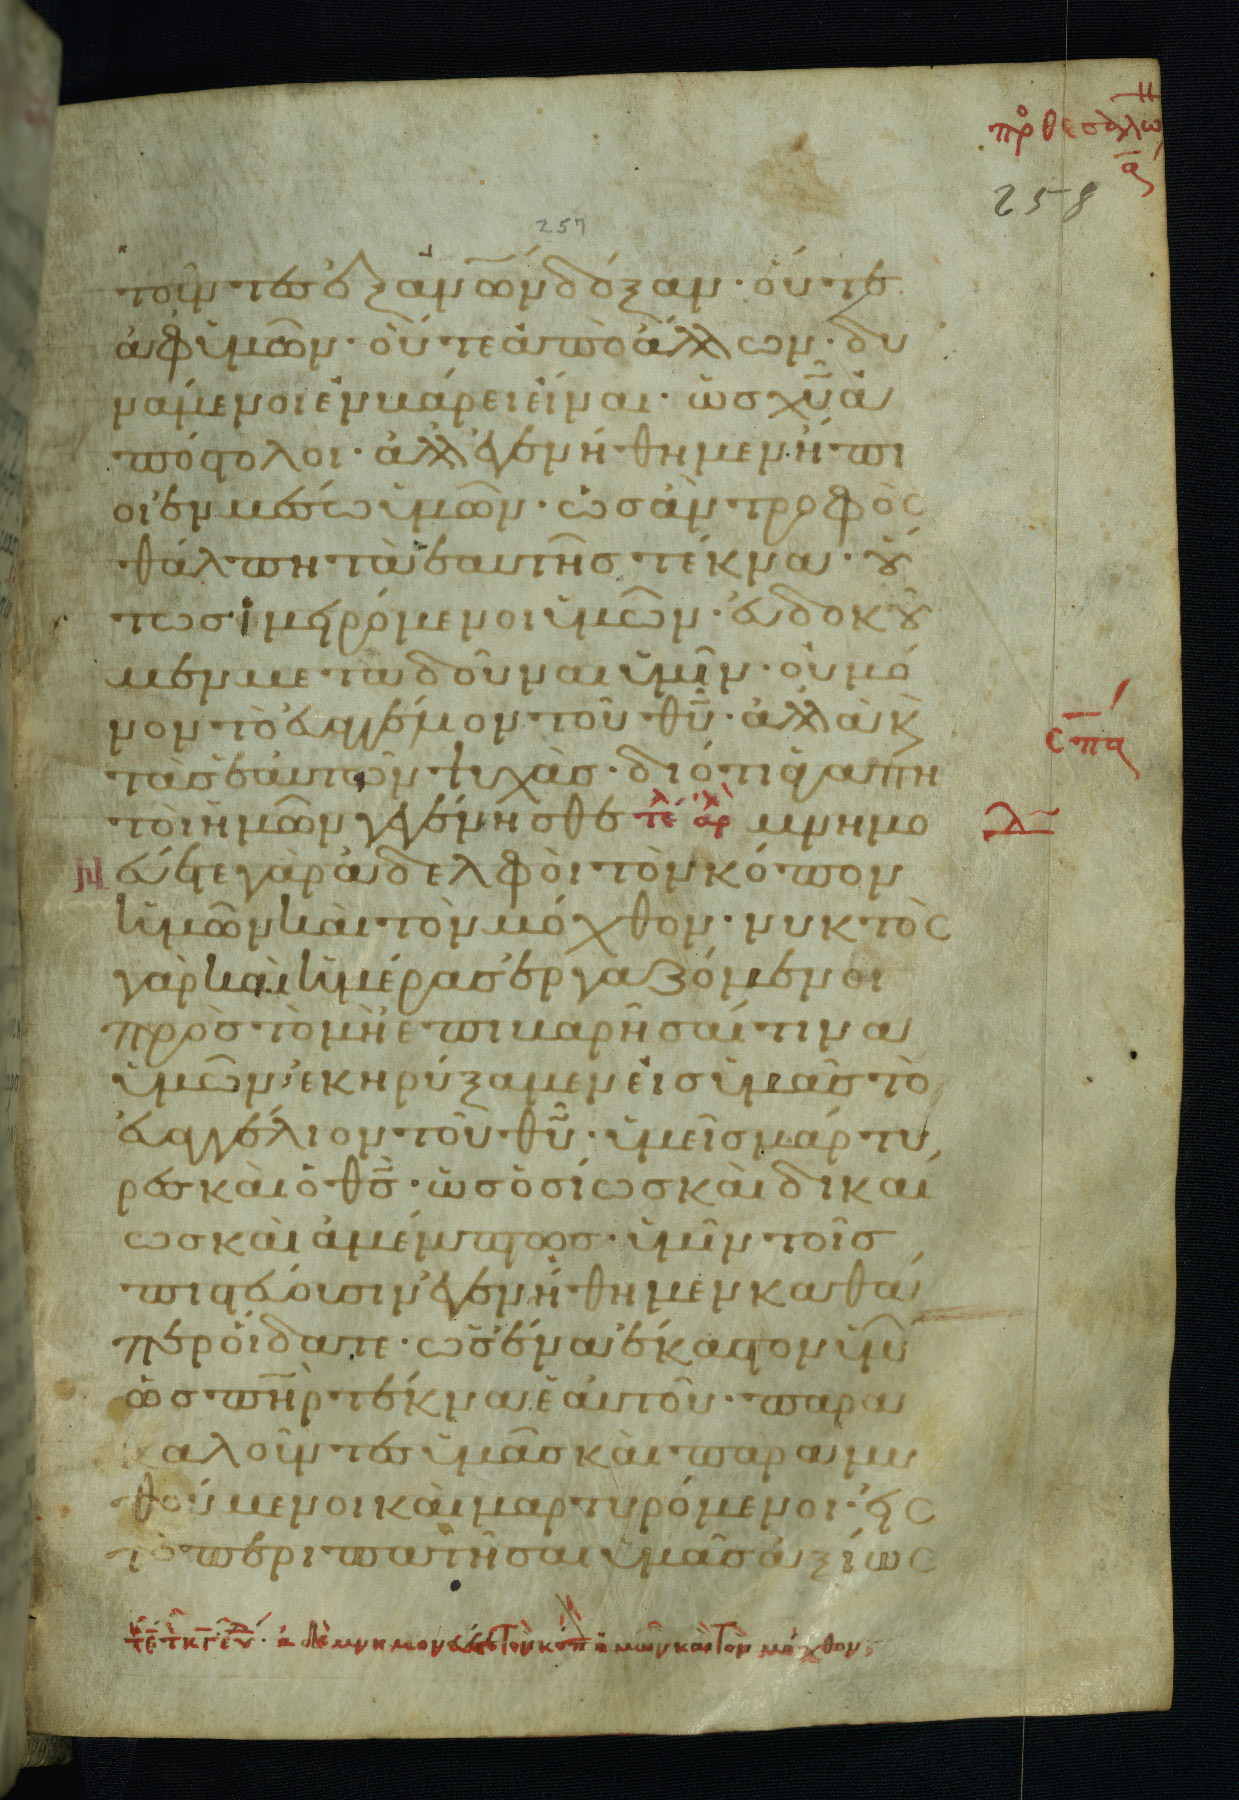 πρ θεσαλω
α
258
257
τοῦντες ἐξ ἀνῶν δόξαν· οὔτε
ἀφ ὑμῶν· οὔτε ἀπὸ ἄλλων· δυ
νάμενοι ἐν βάρει εἶναι· ὡς χῦ ἀ
πόστολοι· ἀλλ ἐγενήθημεν ἤπι
οι ἐν μέσω ὑμῶν· ὡς ἂν τροφὸς
θάλπη τὰ ἑαυτῆς τέκνα· οὕ
τως ἱμειρόμενοι ὑμῶν· εὐδοκοῦ
μεν μεταδοῦναι ὑμῖν· οὐ μό
νον τὸ εὐαγγέλιον τοῦ θῦ· ἀλλὰ κ
τὰς ἑαυτῶν ψυχὰς· διότι ἀγαπη
τοὶ ἡμῶν γεγένησθε τε αρ μνημο
νεύετε γὰρ ἀδελφοὶ τὸν κόπον
ἡμῶν καὶ τὸν μόχθον· νυκτὸς
γὰρ καὶ ἡμέρας ἐργαζόμενοι
πρὸς τὸ μὴ ἐπιβαρῆσαί τινα
ὑμῶν ἐκηρύξαμεν εἰς ὑμᾶς τὸ
εὐαγγέλιον τοῦ θῦ· ὑμεῖς μάρτυ
ρες καὶ ὁ θς· ὡς ὁσίως καὶ δικαί
ως καὶ ἀμέμπτως· ὑμῖν τοῖς
πιστεύουσιν ἐγενήθημεν καθά
περ οἴδατε· ὡς ἕνα ἕκαστον ὑμῶν
ὡς πηρ τέκνα ἑαυτοῦ· παρα
καλοῦντες ὑμᾶς καὶ παραμυ
θούμενοι καὶ μαρτυρόμενοι· εἰς
τὸ περιπατῆσαι ὑμᾶς ἀξίως
μνημονεύετε τὸν κόπ ἡμῶν καὶ τὸν μόχθον